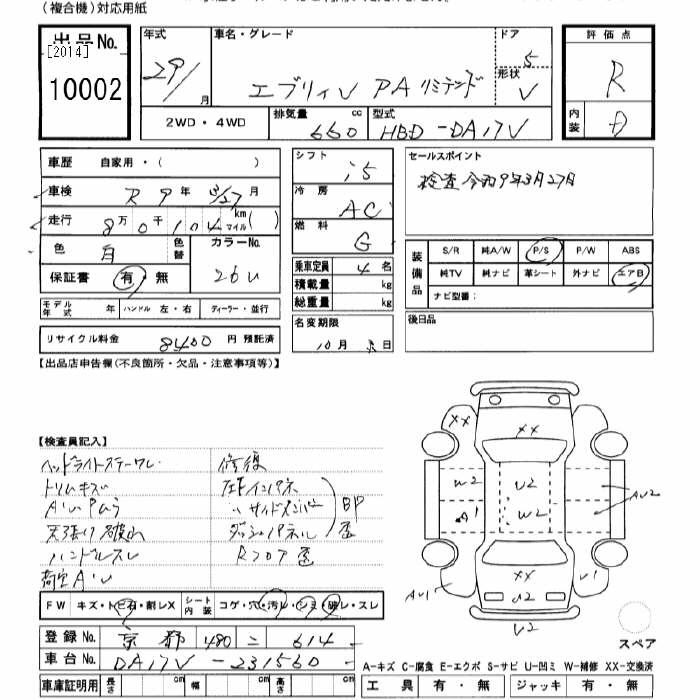 (複合機)対応用紙
出品No. [2014] 10002
年式 29/ 月
車名・グレード エブリィV PA リミテッド
ドア 5
形状 V
評価点 R
内装 D
2WD・4WD
排気量 cc 660
型式 HBD-DA17V
車歴 自家用・( )
車検 R 9 年 3/27 月
走行 8万0千104 km マイル( )
色 白 色替
カラーNo. 26U
保証書 有・無
モデル年式 年 ハンドル 左・右 ディーラー・並行
リサイクル料金 8400 円 預託済
シフト i5
冷房 AC
燃料 G
乗車定員 4 名
積載量 kg
総重量 kg
名変期限
10月 日
セールスポイント
検査 令和9年3月27日
装備品
S/R 純A/W P/S P/W ABS
純TV 純ナビ 革シート 外ナビ エアB
ナビ型番:
後日品
【出品店申告欄(不良箇所・欠品・注意事項等)】
【検査員記入】
トリムキズ
天張り破れ
ハンドルスレ
荷室A'U
修復
サイドメンバー
ダッシュパネル
Rフロア歪
FW キズ・トビ石・割レX シート内装 コゲ・穴・汚レ・シミ・破レ・スレ
登録No. 京都 480 ニ 614
車台No. DA17V-231560
車庫証明用 長さ cm 幅 cm 高さ cm
XX
XX
W2 U2 AU2
A1 W2
XX
AU1 U2 U1
U2
スペア
A-キズ C-腐食 E-エクボ S-サビ U-凹ミ W-補修 XX-交換済
工具 有・無 ジャッキ 有・無